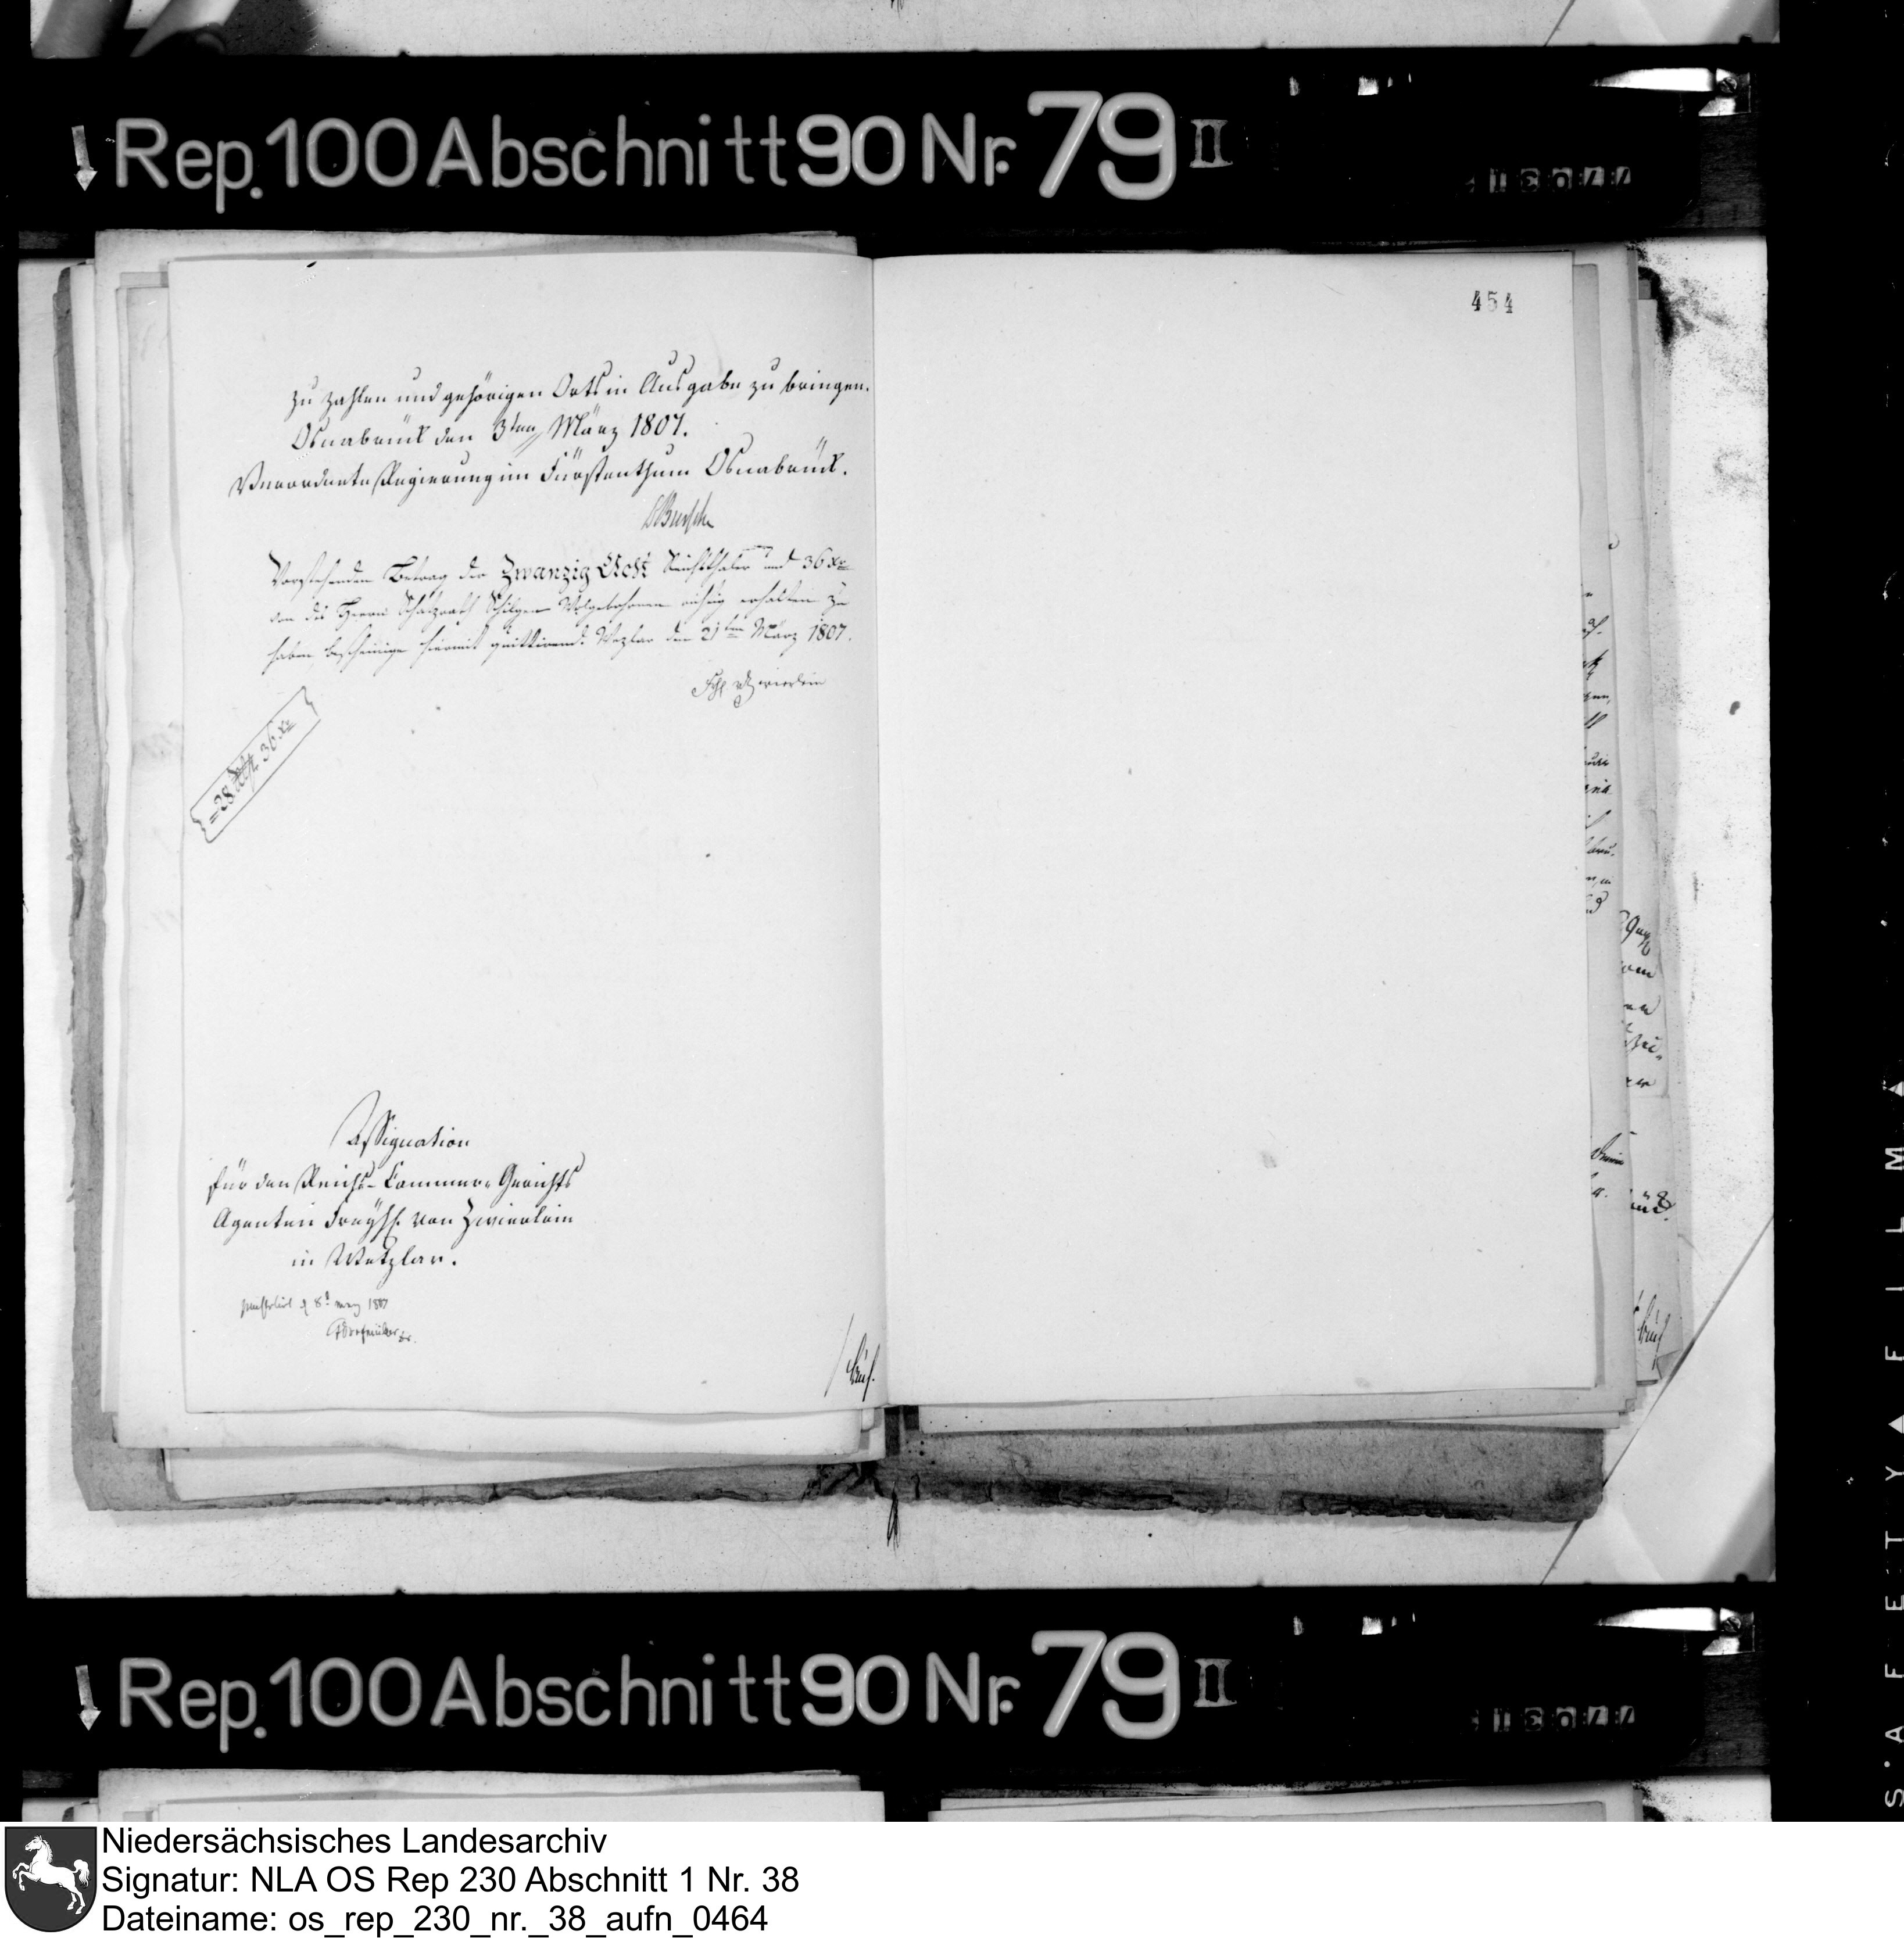 Rep. 100 Abschnitt 90 Nr. 79 II
77031
454
zu zahlen und gehörigen Orts in Ausgabe zu bringen.
Osnabrück den 3ten März 1807.
Verordnete Regierung im Fürstenthum Osnabrück.
Busche
Vorstehenden Betrag der Zwanzig Acht Reichsthaler und 36 xr
von des Herrn Schatzrath Schilgen Wolgebohrnen richtig erhalten zu
haben, bescheinige hiermit quittirend. Wezlar den 21ten März 1807.
Frh. v Zwierlein
= 28 rthlr. 36 xr
Assignation
für den Reichs-Cammer-Gerichts
Agenten Freyh. von Zwierlein
in Wetzlar.
8t 1807
Rep. 100 Abschnitt 90 Nr. 79 II
77031
SAFETY FILM
Niedersächsisches Landesarchiv
Signatur: NLA OS Rep 230 Abschnitt 1 Nr. 38
Dateiname: os_rep_230_nr._38_aufn_0464